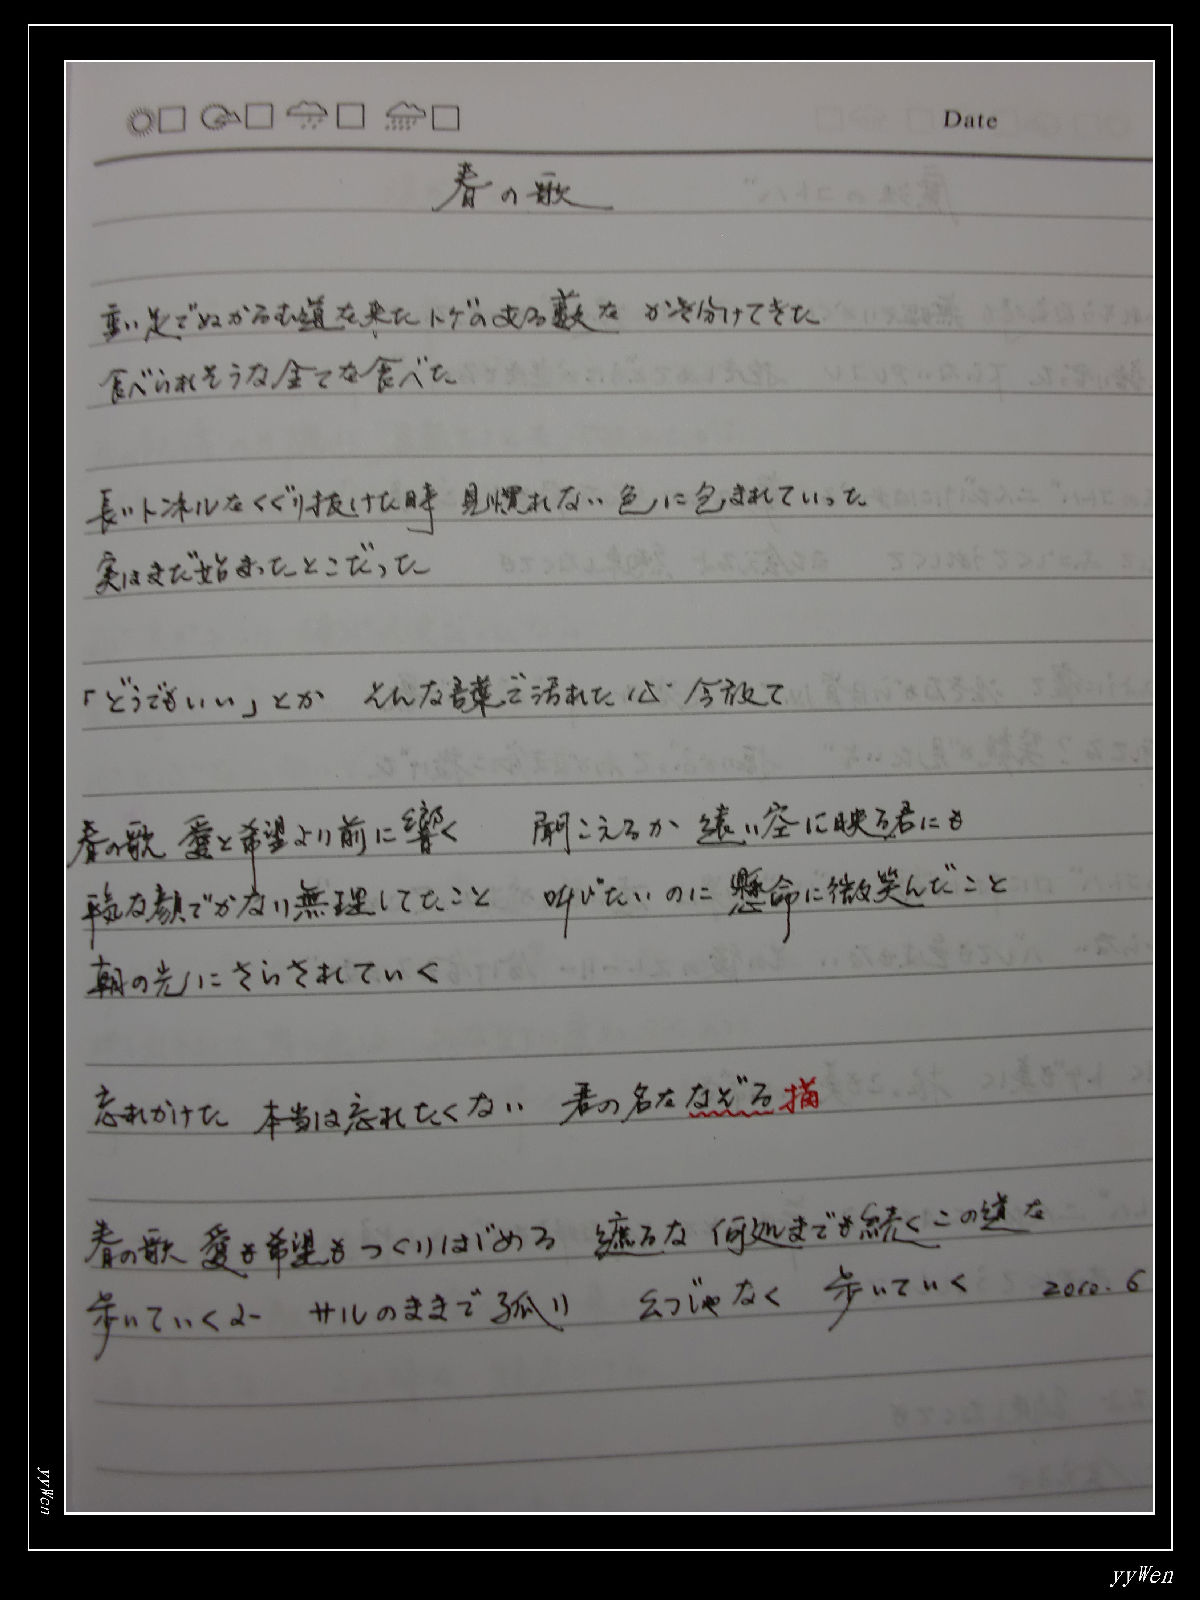 Date
春の歌
重い足でぬかるむ道を来た トゲのある藪を かき分けてきた
食べられそうな全てを食べた
長いトンネルをくぐり抜けた時 見慣れない色に包まれていった
実はまだ始まったとこだった
「どうでもいい」とか そんな言葉で汚れた 心 今放て
春の歌 愛と希望より前に響く 聞こえるか 遠い空に映る君にも
平気な顔でかなり無理してたこと 叫びたいのに懸命に微笑んだこと
朝の光にさらされていく
忘れかけた 本当は忘れたくない 君の名をなぞる 描
春の歌 愛も希望もつくりはじめる 遮るな 何処までも続くこの道を
歩いていくよ サルのままで孤り 幻じゃなく 歩いていく 2010.6
yyWen
yyWen